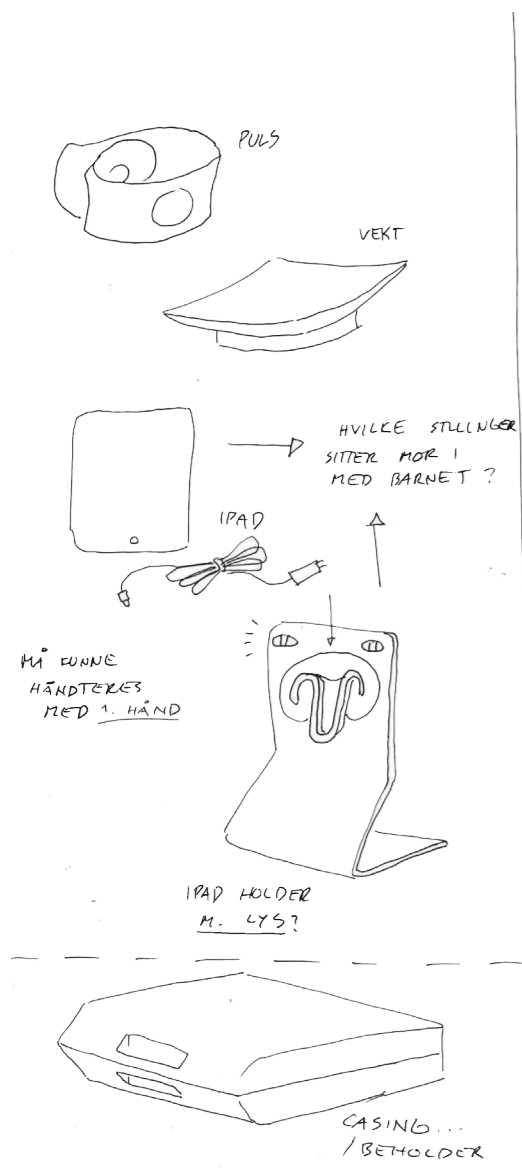 PULS
VEKT
HVILKE STILLINGER
SITTER MOR I
MED BARNET?
IPAD
MÅ KUNNE
HÅNDTERES
MED 1. HÅND
IPAD HOLDER
M. LYS?
CASING...
/BEHOLDER